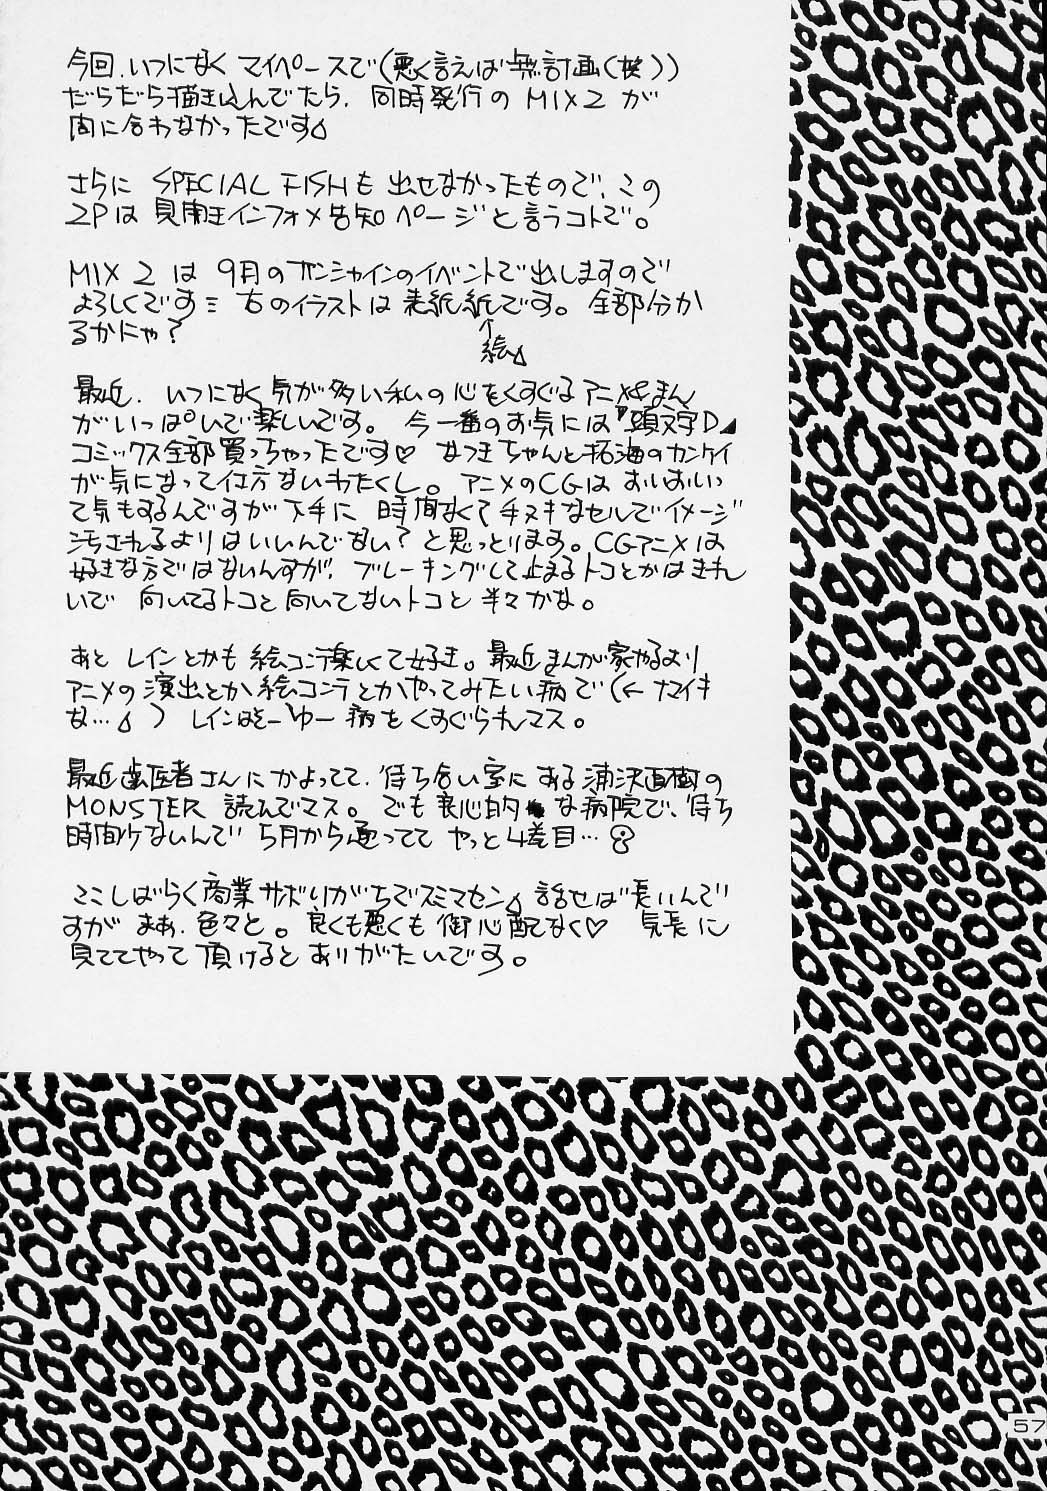 今回、いつになく マイペースで(悪く言えば無計画(笑))
だらだら描き込んでたら、同時発行の MIX 2 が
間に合わなかったです
さらに SPECIAL FISHも 出せなかったもので、この
2Pは 見開きインフォメ告知ページと言うコトで。
MIX 2 は 9月のサンシャインのイベントで出しますので
よろしくです 右のイラストは 表紙紙です。全部分か
↑
絵
るかにゃ?
最近、いつになく 気が多い私の心をくすぐるアニメ&まん
がいっぱいで楽しいです。今一番のお気には『頭文字D』
コミックス全部買っちゃったです♡ なつきちゃんと拓海のカンケイ
が気になって仕方ないわたくし。アニメのCGは おいおいっ
て気もするんですが 下手に 時間なくて手ヌキなセルでイメージ
汚されるよりはいいんでない?と思っとります。CGアニメは
好きな方ではないんすが、ブレーキングして止まるトコとかはきれ
いで 向いてるトコと向いてないトコと 半々かな。
あと レインとかも 絵コンテ楽しくて好き。最近まんが家やるより
アニメの演出とか絵コンテとかやってみたい病で(←ナマイキ
な…) レインはそーゆー病をくすぐられマス。
最近歯医者さんにかよってて、待ち合い室にある浦沢直樹の
MONSTER 読んでマス。でも良心的な病院で、待ち
時間少ないんで 5月から通ってて やっと4巻目…
ここしばらく商業サボりがちでスミマセン 話せば長いんで
すが まぁ、色々と。良くも悪くも御心配なく♡ 気長に
見ててやって頂けるとありがたいです。
57